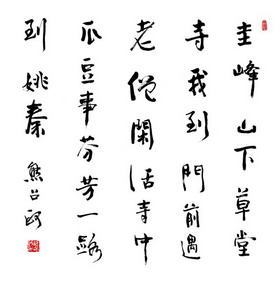 圭峰山下草堂
寺我到門前遇
老僧閑話中
瓜豆事芬芳一路
到姚秦
熊召政